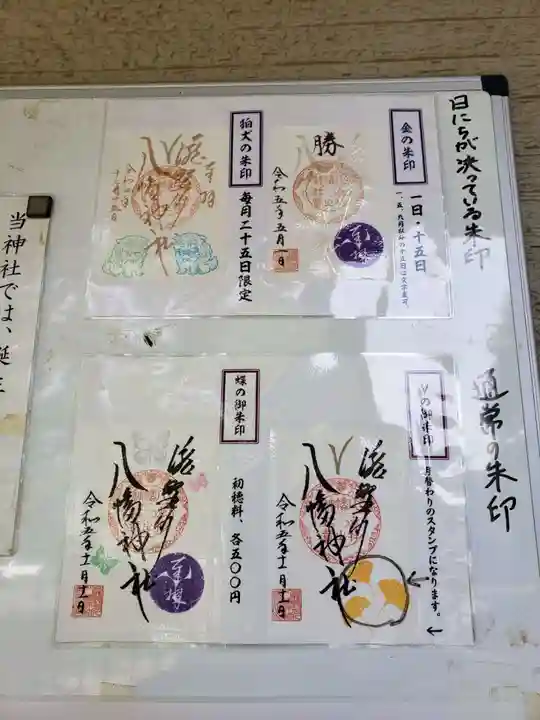 日にちが決っている朱印
金の朱印
一日・十五日
勝
令和五年五月一日
奉拝
狛犬の朱印
毎月二十五日限定
奉拝
八幡神社
通常の朱印
の御朱印
月替わりのスタンプになります。
八幡神社
令和五年十一月十一日
蝶の御朱印
初穂料、各五〇〇円
八幡神社
奉拝
令和五年十一月十一日
当神社では、誕生